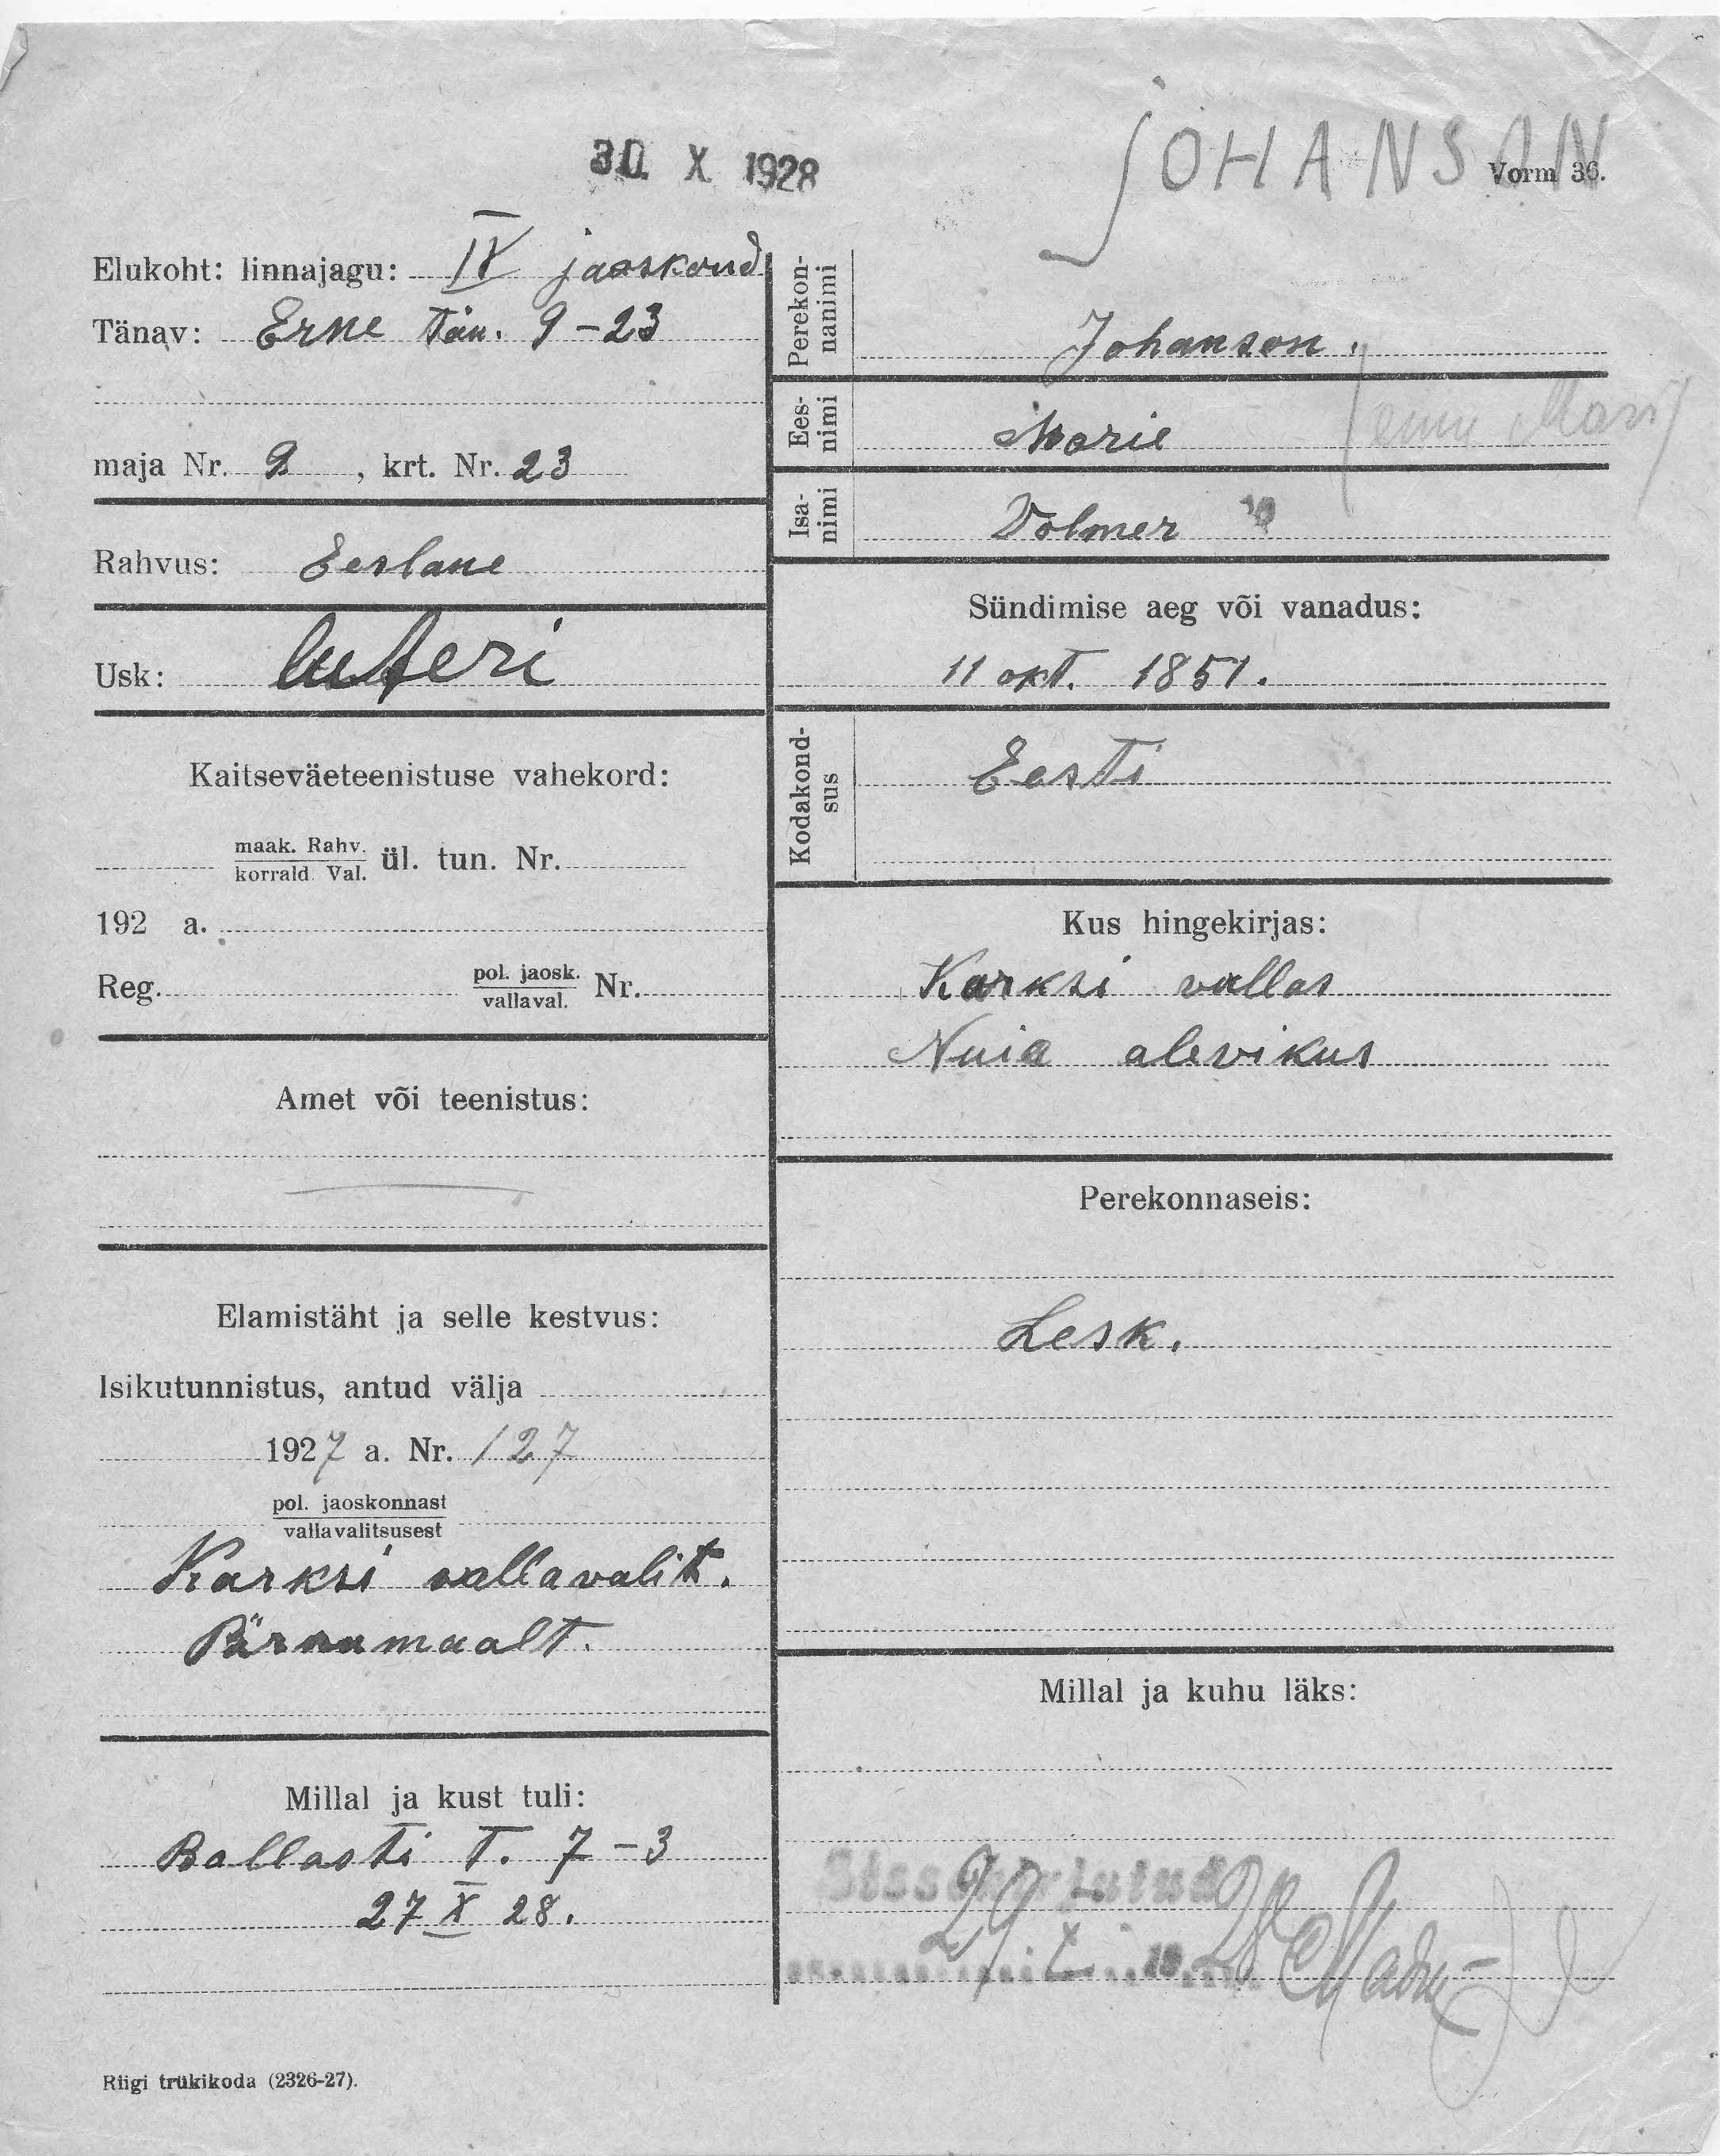 30. X 1928
JOHANSON
Vorm 36.
Elukoht: linnajagu: IV jaoskond
Tänav: Erne tän. 9-23
maja Nr. 9, krt. Nr. 23
Rahvus: Eeslane
Usk: luteri
Kaitseväeteenistuse vahekord:
maak. Rahv.
korrald. Val. ül. tun. Nr.
192 a.
Reg. pol. jaosk.
vallaval. Nr.
Amet või teenistus:
Elamistäht ja selle kestvus:
Isikutunnistus, antud välja
1927 a. Nr. 127
pol. jaoskonnast
vallavalitsusest
Karksi vallavalit.
Pärnumaalt.
Millal ja kust tuli:
Ballasti T. 7-3
27 X 28.
Riigi trükikoda (2326-27).
Perekon-
nanimi
Johanson.
Ees-
nimi
Marie
Mari
Isa-
nimi
Volmer
Sündimise aeg või vanadus:
11 okt. 1851.
Kodakond-
sus
Eesti
Kus hingekirjas:
Karksi vallas
Nuia alevikus
Perekonnaseis:
Lesk.
Millal ja kuhu läks:
Sissekirjutud
29 X 1928